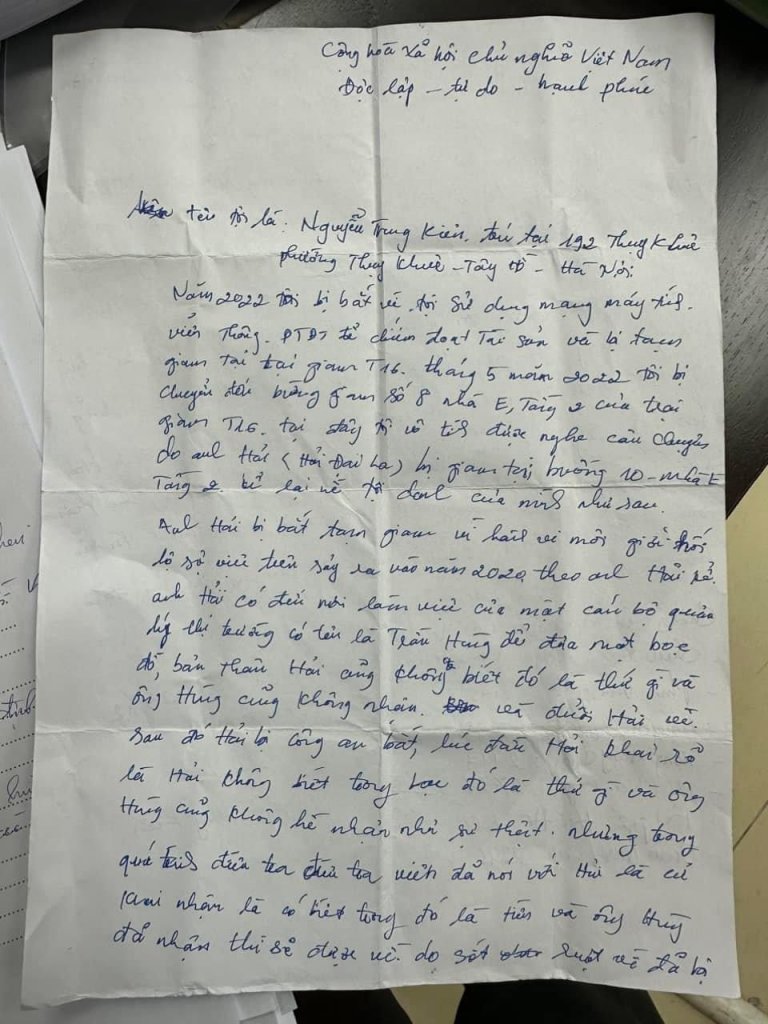 Cộng hòa xã hội chủ nghĩa Việt Nam
Độc lập – tự do – hạnh phúc
tên tôi là: Nguyễn Trung Kiên. trú tại 192 Thụy Khuê
phường Thụy Khuê – Tây Hồ – Hà Nội
Năm 2022 tôi bị bắt về tội sử dụng mạng máy tính.
viễn thông. PTĐT để chiếm đoạt tài sản và bị tạm
giam tại trại giam T16. tháng 5 năm 2022 tôi bị
chuyển đến buồng giam số 8 nhà E, Tầng 2 của trại
giam T16. tại đây tôi vô tình được nghe câu chuyện
do anh Hải (Hải Đại La) bị giam tại buồng 10 – nhà E
Tầng 2. kể lại về tội danh của mình như sau.
Anh Hải bị bắt tạm giam vì hành vi môi giới hối
lộ sự việc trên sảy ra vào năm 2020, theo anh Hải kể.
anh Hải có đến nơi làm việc của một cán bộ quản
lý thị trường có tên là Trần Hùng để đưa một bọc
đồ, bản thân Hải cũng không biết đó là thứ gì và
ông Hùng cũng không nhận. và đuổi Hải về.
sau đó Hải bị công an bắt, lúc đầu Hải khai rõ
là Hải không biết trong bọc đó là thứ gì và ông
Hùng cũng không hề nhận như sự thật. nhưng trong
quá trình điều tra điều tra viên đã nói với Hải là cứ
khai nhận là có biết trong đó là tiền và ông Hùng
đã nhận thì sẽ được về. do sốt ruột về đã bị